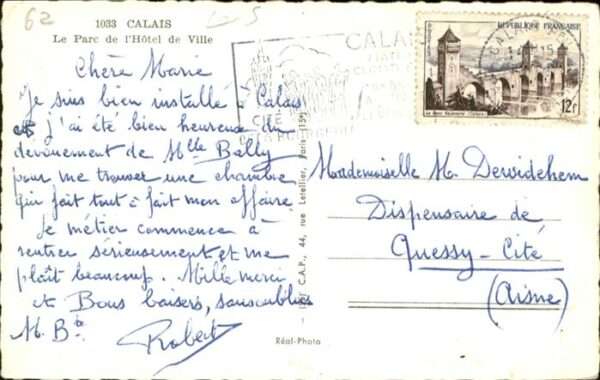 62
1033 CALAIS
Le Parc de l'Hôtel de Ville
Chère Marie
Je suis bien installé à Calais
et j'ai été bien heureux du
dévouement de Mlle Bally
pour me trouver une chambre
qui fait tout à fait mon affaire
Je métier commence à
rentrer sérieusement et me
plaît beaucoup. Mille merci
et Bons baisers, sans oublier
M. Bb
Robert
C.A.P., 44, rue Letellier, Paris (15e)
Réal-Photo
CALAIS
REPUBLIQUE FRANÇAISE
12f
Mademoiselle M. Dewidehem
Dispensaire de
Quessy-Cité
(Aisne)